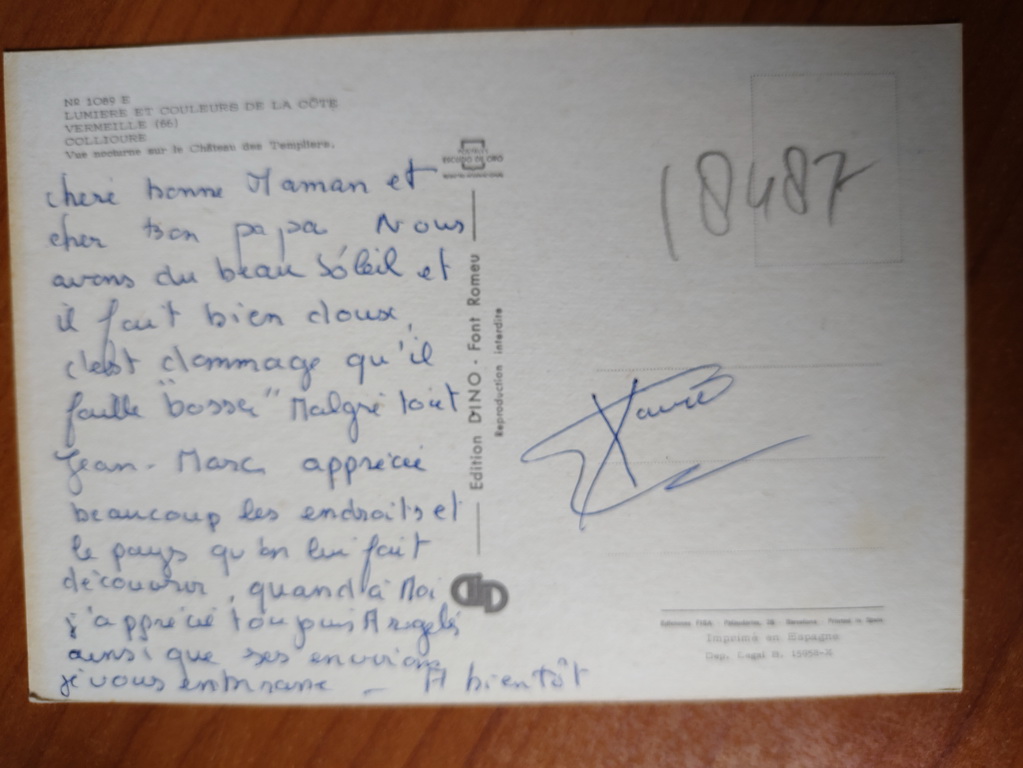 NR 1089 E
LUMIERE ET COULEURS DE LA CÔTE
VERMEILLE (66)
COLLIOURE
Vue nocturne sur le Château des Templiers.
chere bonne Maman et
cher bon papa Nous
avons du beau Soleil et
il fait bien doux,
c'est dommage qu'il
faille "bosser" Malgré tout
Jean-Marc apprécie
beaucoup les endroits et
le pays qu'on lui fait
découvrir, quand à Moi
j'apprécie toujours Argelès
ainsi que ses environs
je vous embrasse - A bientôt
ESCUDO DE ORO
Edition DINO - Font Romeu
Reproduction interdite
18487
Xavié
Imprimé en Espagne
Dep. Legal B. 15950-X